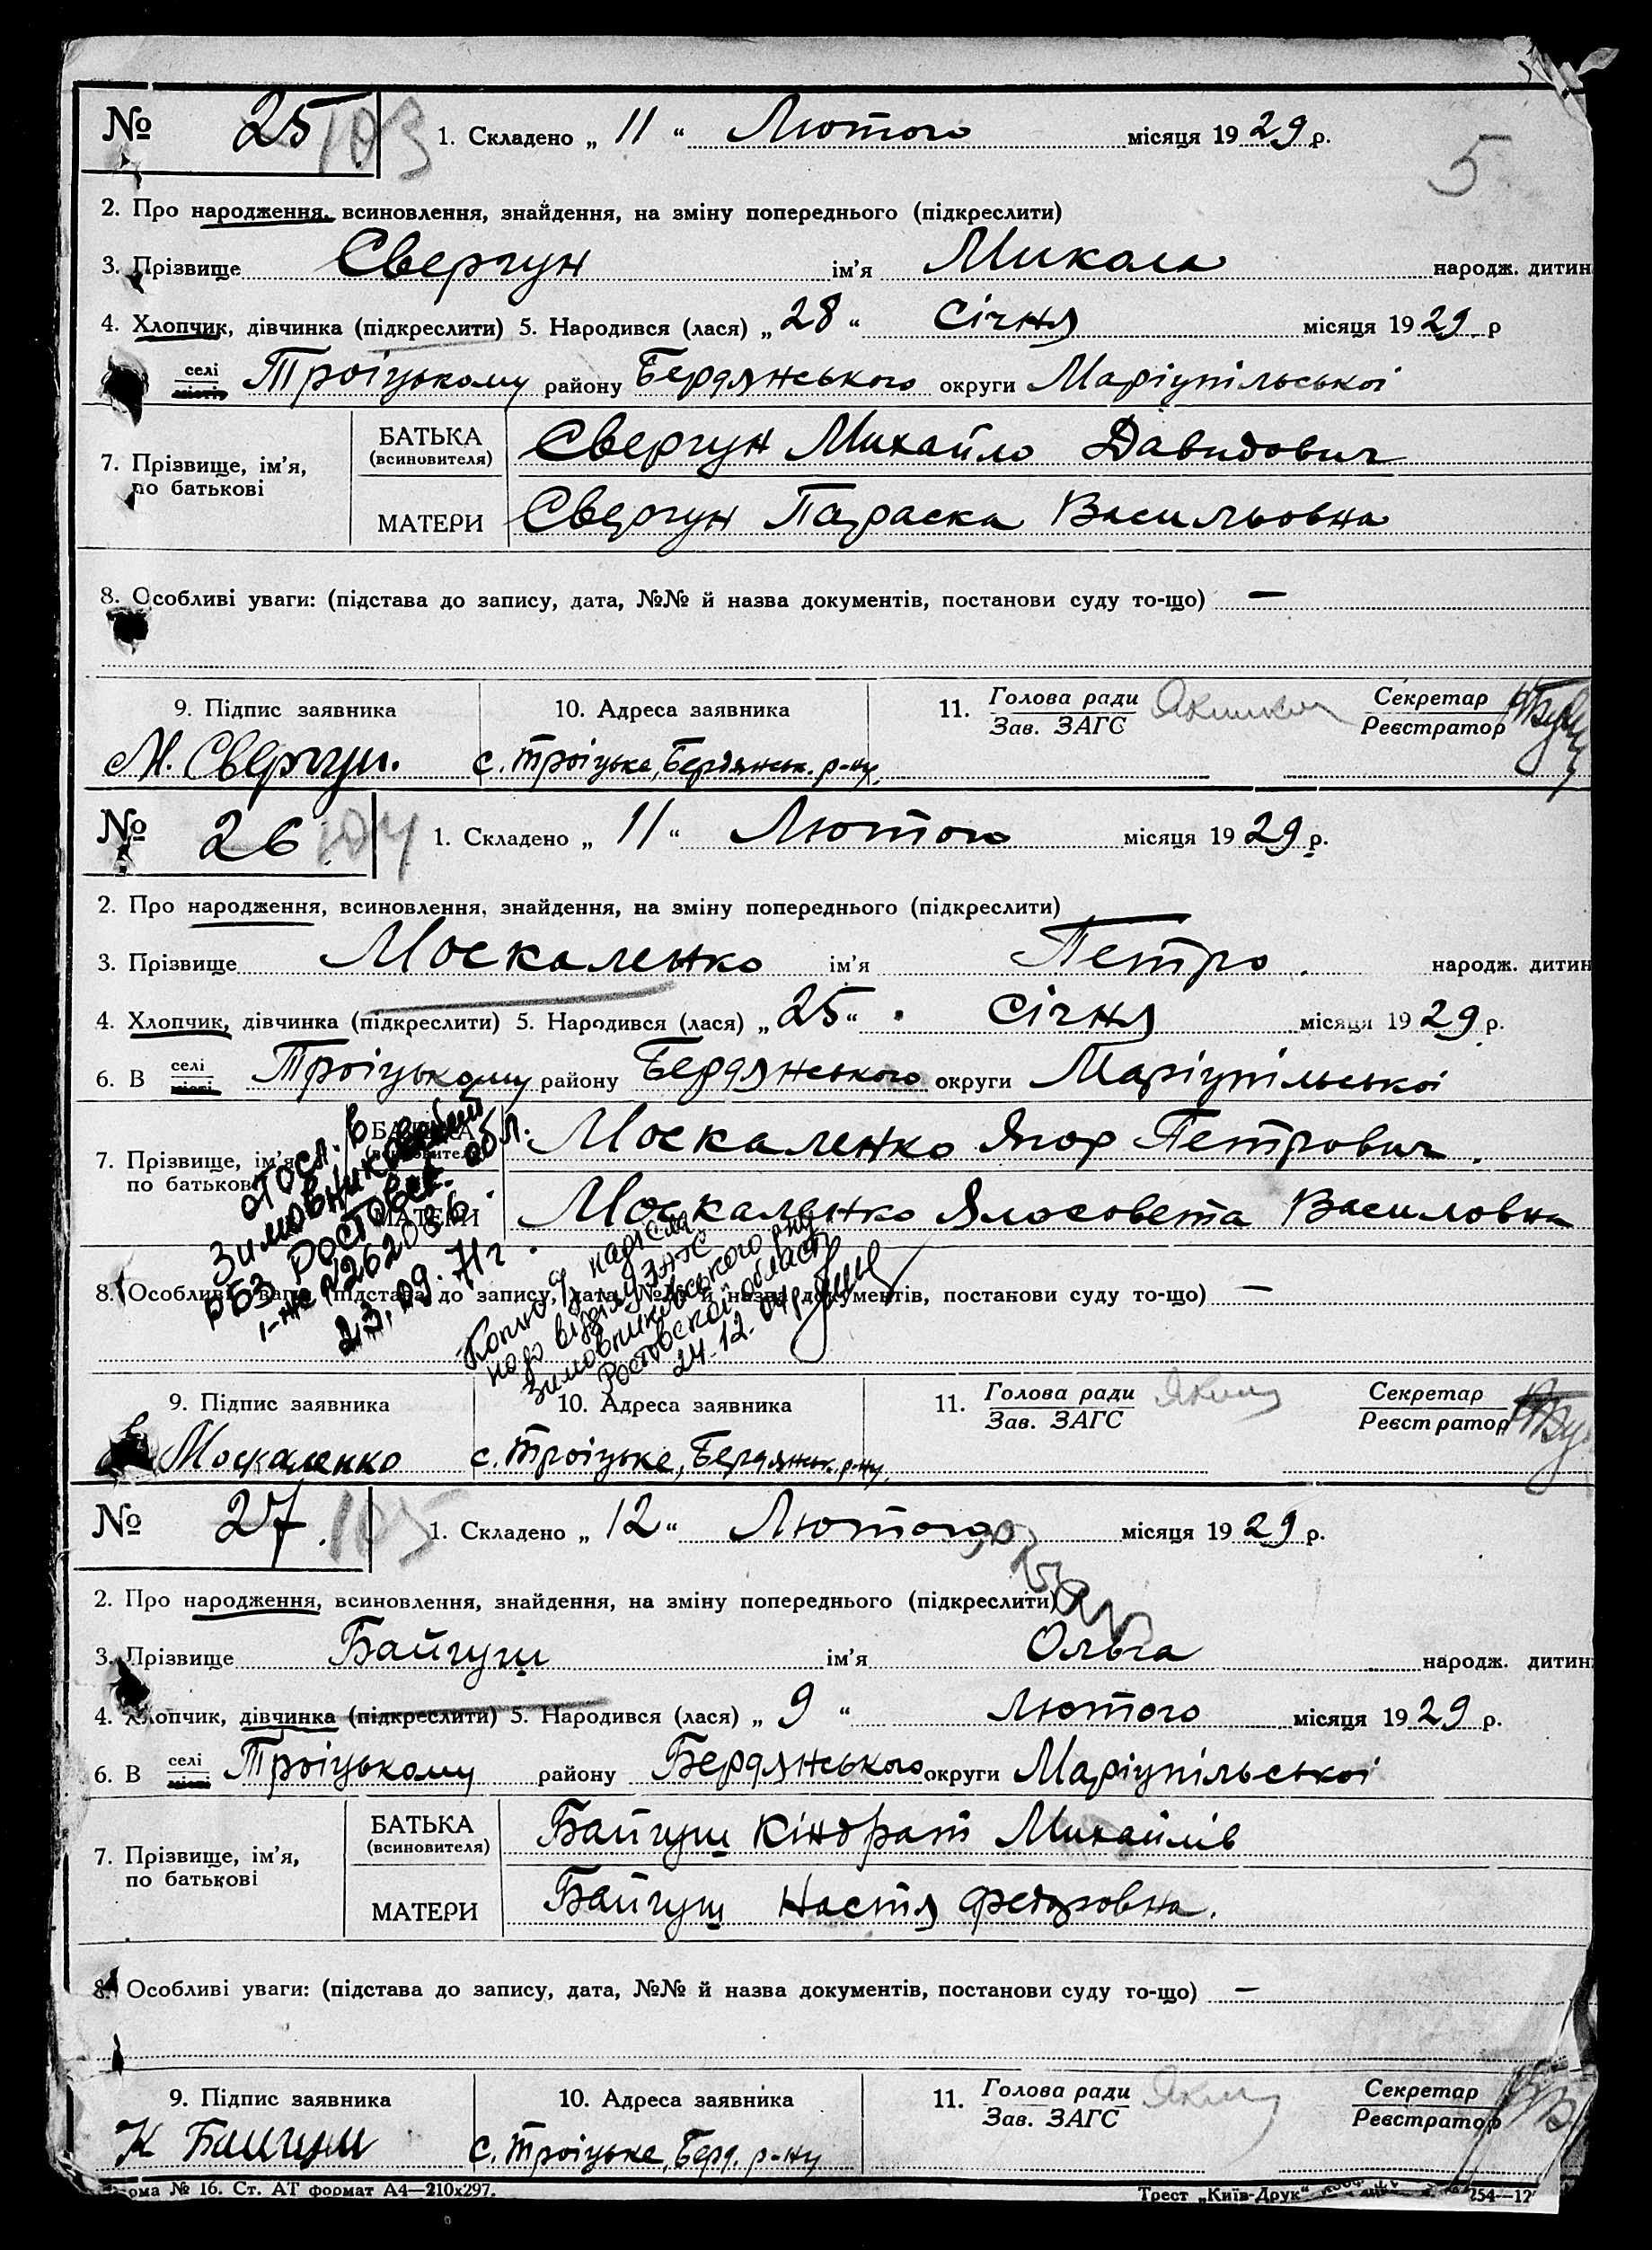 № 25 103 1. Складено „ 11 “ Лютого місяця 19 29 р.
5
2. Про народження, всиновлення, знайдення, на зміну попереднього (підкреслити)
3. Прізвище Свергун ім’я Микола народж. дитин
4. Хлопчик, дівчинка (підкреслити) 5. Народився (лася) „ 28 “ Січня місяця 19 29 р
селі місті Троіцькому району Бердянського округи Маріупільської
7. Прізвище, ім’я, по батькові
БАТЬКА (всиновителя) Свергун Михайло Давидович
МАТЕРИ Свергун Параска Васильовна
8. Особливі уваги: (підстава до запису, дата, №№ й назва документів, постанови суду то-що) —
9. Підпис заявника 10. Адреса заявника 11. Голова ради Зав. ЗАГС Секретар Реєстратор
М. Свергун. с. Троіцьке, Бердянськ. р-ну.
№ 26 104 1. Складено „ 11 “ Лютого місяця 19 29 р.
2. Про народження, всиновлення, знайдення, на зміну попереднього (підкреслити)
3. Прізвище Москаленко ім’я Петро. народж. дитин
4. Хлопчик, дівчинка (підкреслити) 5. Народився (лася) „ 25 “ Січня місяця 19 29 р.
6. В селі місті Троіцькому району Бердянського округи Маріупільської
7. Прізвище, ім’я, по батькові
БАТЬКА (всиновителя) Москаленко Ягор Петрович.
МАТЕРИ Москаленко Ялосовета Василовна
отосл. в
Зимовниковский
РБЗ Ростовск. обл.
23.09.71г.
Копію надісла
но до відділу ЗАГС
Зимовниківського р-ну
Ростовской області
24.12.
8. Особливі уваги: (підстава до запису, дата, №№ й назва документів, постанови суду то-що) —
9. Підпис заявника 10. Адреса заявника 11. Голова ради Зав. ЗАГС Секретар Реєстратор
Москаленко с. Троіцьке, Бердянськ. р-ну.
№ 27. 105 1. Складено „ 12 “ Лютого місяця 19 29 р.
2. Про народження, всиновлення, знайдення, на зміну попереднього (підкреслити)
3. Прізвище Байгуш ім’я Ольга народж. дитин
4. Хлопчик, дівчинка (підкреслити) 5. Народився (лася) „ 9 “ Лютого місяця 19 29 р.
6. В селі місті Троіцькому району Бердянського округи Маріупільської
7. Прізвище, ім’я, по батькові
БАТЬКА (всиновителя) Байгуш Кіндрат Михайлів
МАТЕРИ Байгуш Настя Федоровна.
8. Особливі уваги: (підстава до запису, дата, №№ й назва документів, постанови суду то-що) —
9. Підпис заявника 10. Адреса заявника 11. Голова ради Зав. ЗАГС Секретар Реєстратор
К Байгуш с. Троіцьке, Берд. р-ну
№ 16. Ст. АТ формат А4—210х297. Трест „Київ-Друк“